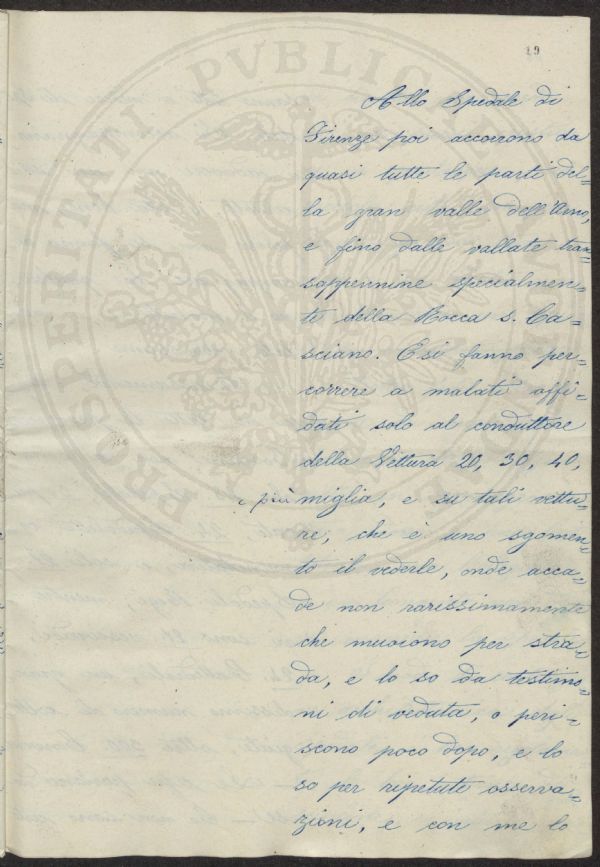 19
Allo Spedale di
Firenze poi accorrono da
quasi tutte le parti del=
la gran valle dell'Arno,
e fino dalle vallate tran=
sappennine specialmen=
te della Rocca S. Ca=
sciano. E si fanno per=
correre a malati affi=
dati solo al conduttore
della Vettura 20, 30, 40,
e più miglia, e su tali vettu=
re, che è uno sgomen=
to il vederle, onde acca=
de non rarissimamente
che muoiono per stra=
da, e lo so da testimo=
ni di veduta, o peri=
scono poco dopo, e lo
so per ripetute osserva=
zioni, e con me lo
PVBLICAE
PROSPERITATI